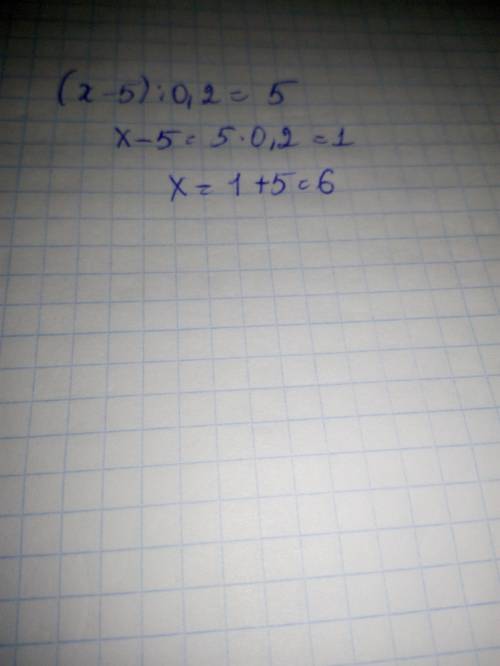 (x-5):0,2= 5
x-5= 5·0,2=1
x= 1+5=6